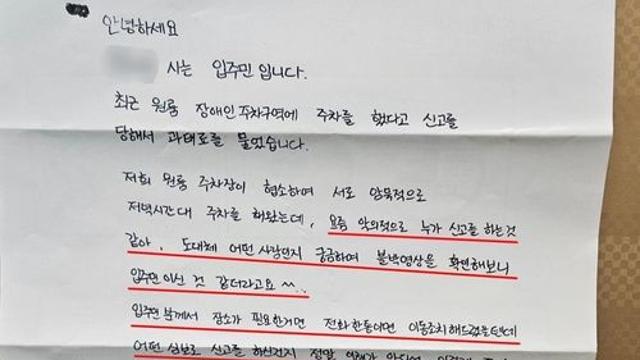 안녕하세요
사는 입주민 입니다.
최근 원룸 장애인 주차구역에 주차를 했다고 신고를
당해서 과태료를 물었습니다.
저희 원룸 주차장이 협소하여 서로 암묵적으로
저녁시간대 주차를 해왔는데, 요즘 악의적으로 누가 신고를 하는것
같아, 도대체 어떤 사람인지 궁금하여 블박영상을 확인해보니
입주민 이신 것 같더라고요 ^^..
입주민 분께서 장소가 필요한거면 전화 한통이면 이동조치 해드렸을텐데
어떤 심보로 신고를 하신건지 정말 이해가 안되어